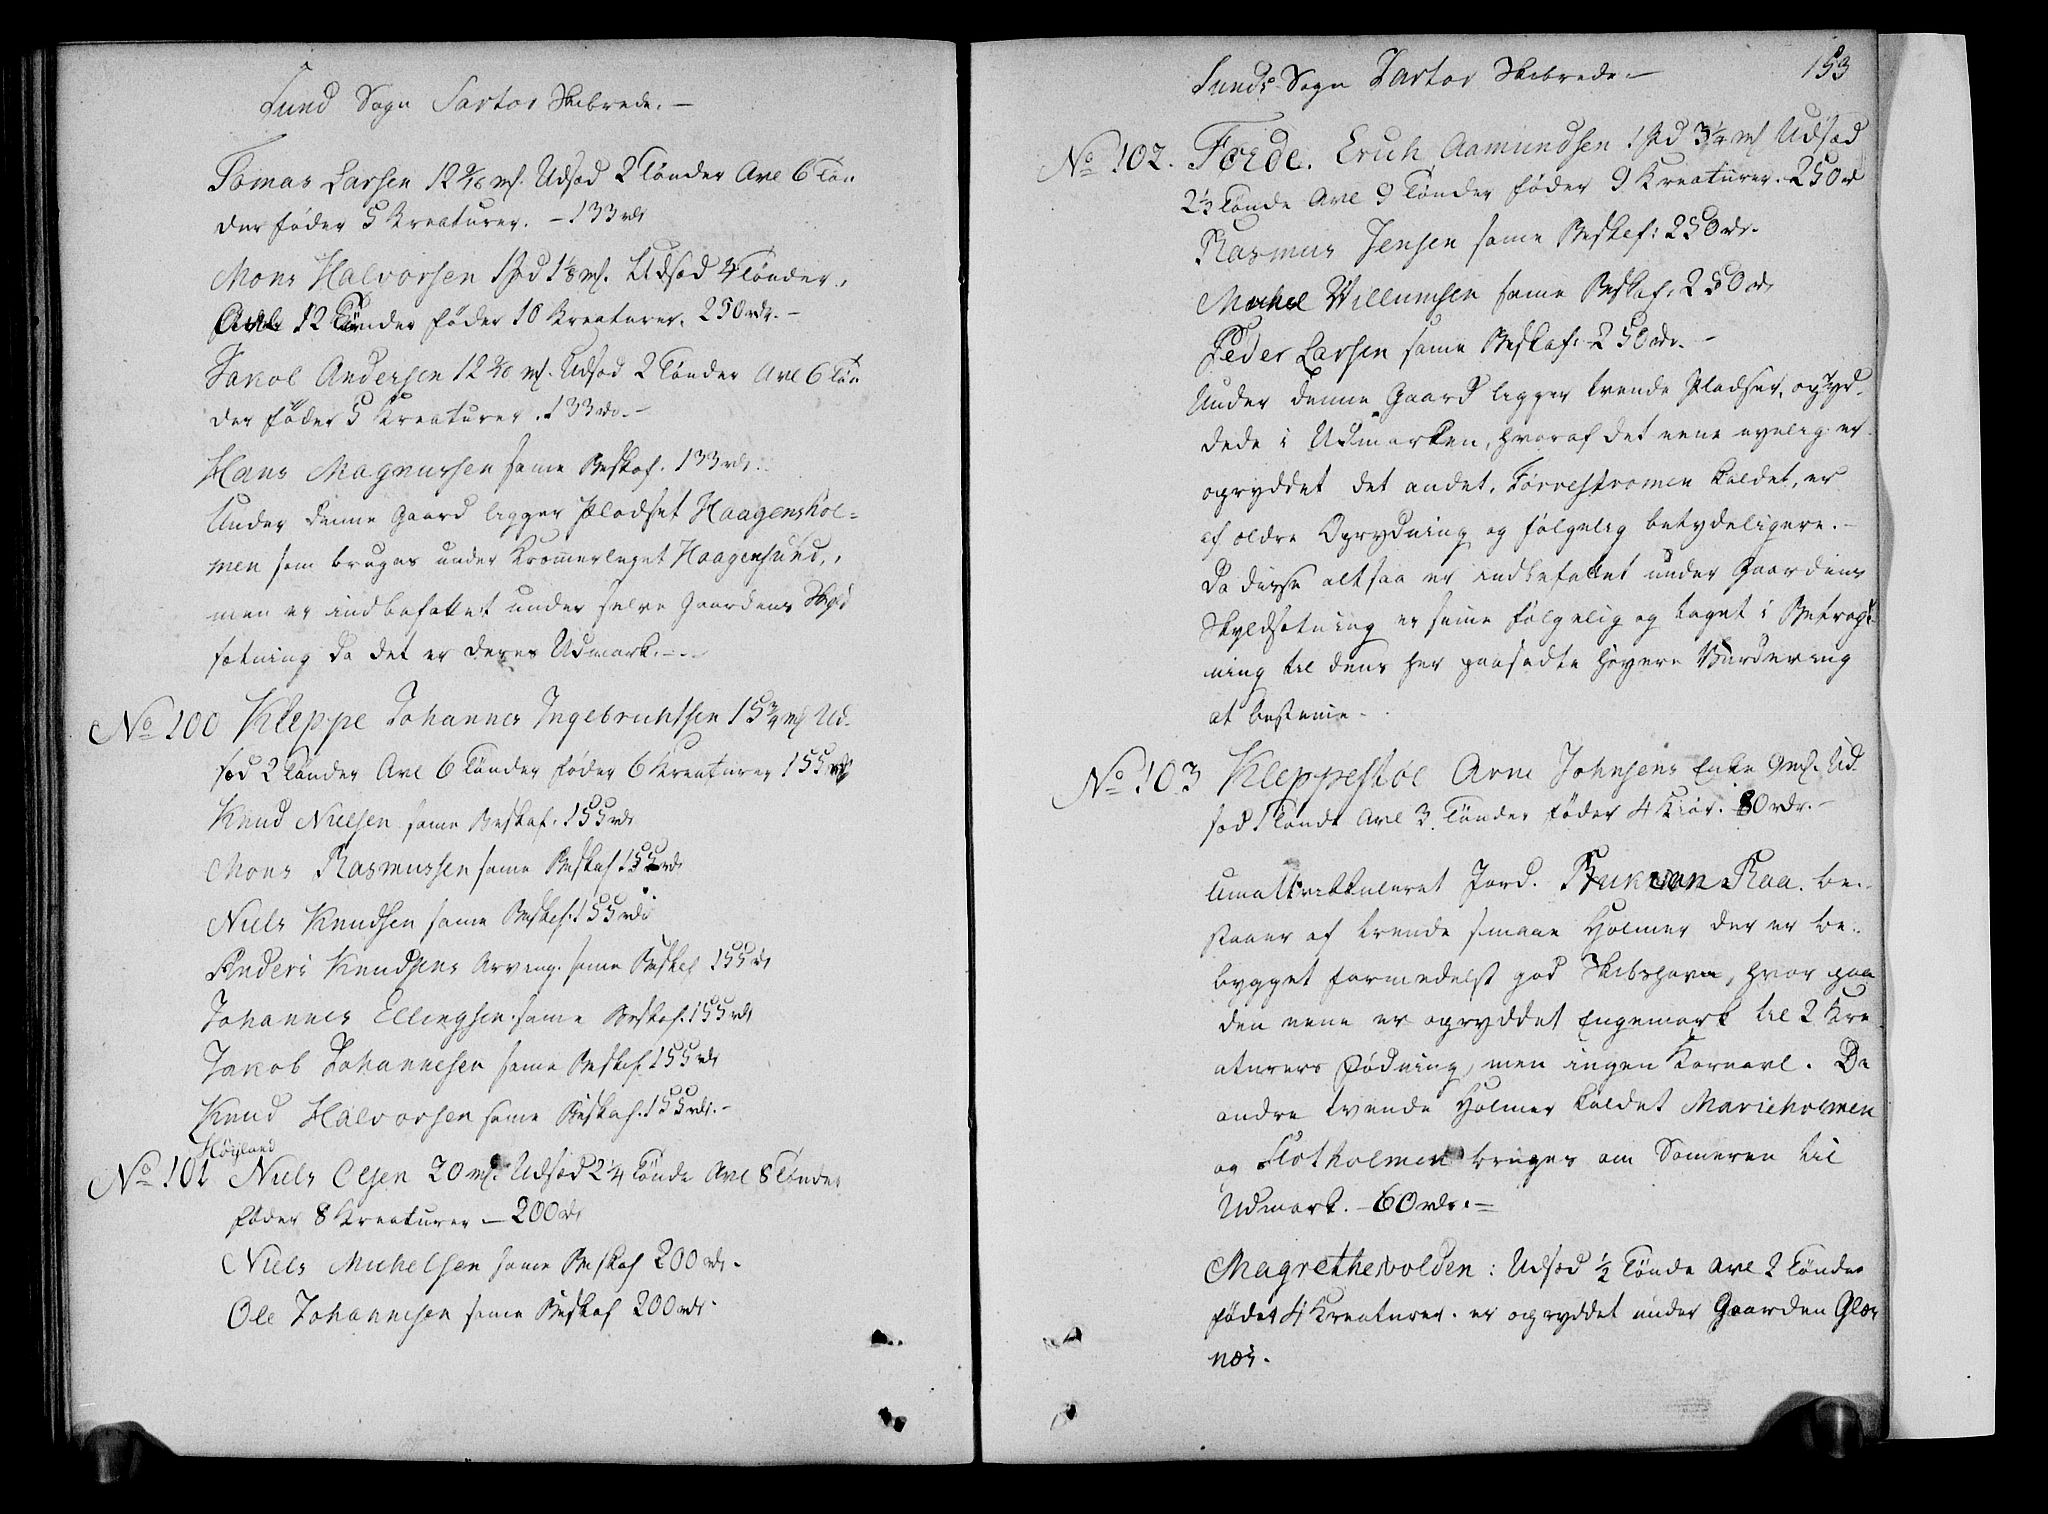 Sund Sogn Sartor Skibrede. —
Tomas Larsen 12 9/16 mf. Udsæd 2 Tønder Avl 6 Tøn
der føder 5 Kreaturer. — 133 rdr
Mons Halvorsen 1 Pd 1 1/8 mf. Udsæd 4 Tønder,
Avl 12 Tønder føder 10 Kreaturer. 250 rdr. —
Jakob Andersen 12 9/16 mf. Udsæd 2 Tønder Avl 6 Tøn
der føder 5 Kreaturer. 133 rdr. —
Hans Magnussen same Beskaf. 133 rdr.
Under denne Gaard ligger Pladset Haagenshol=
men som bruges under Kromerleyet Haagensund,
men er indbefattet under selve Gaardens Skyld
sætning da det er deres Udmark. —
No 100 Kleppe Johannes Ingebrichtsen 15 3/4 mf Ud.
sæd 2 Tønder Avl 6 Tønder føder 6 Kreaturer 155 rdr
Knud Nielsen same Beskaf. 155 rdr
Mons Rasmussen same Beskaf 155 rdr
Niels Knudsen same Beskaf. 155 rdr
Anders Knudsens Arving. same Beskaf 155 rdr
Johannes Ellingsen same Beskaf. 155 rdr
Jakob Johannesen same Beskaf 155 rdr
Knud Halvorsen same Beskaf. 155 rdr. —
Høyland
No 101 Niels Olsen 20 mf. Udsæd 2 1/4 Tønde Avl 8 Tønder
føder 8 Kreaturer — 200 rdr
Niels Michelsen same Beskaf 200 rdr.
Ole Johannesen same Beskaf 200 rdr.
Sunds Sogn Sartor Skibrede. — 153
No 102. Förde. Erich Aamundsen 1 Pd 3 1/4 mf Udsæd
2 1/3 Tønde Avl 9 Tønder føder 9 Kreaturer. 250 rd
Rasmus Jensen same Beskaf: 250 rdr.
Michel Willumsen same Beskaf. 250 rd.
Peder Larsen same Beskaf: 250 rdr. —
Under denne Gaard ligger tvende Pladser, opryd.
dede i Udmarken, hvoraf det eene nylig er
opryddet det andet, Førrestrømen kaldet, er
af ældre Oprydning og følgelig betydeligere. —
Da disse altsaa er indbefattet under Gaardens
Skyldsætning er same følgelig og taget i Betragt
ning til dens her paasadte høyere Vurdering
at bestemme.
No 103 Kleppestøe Arne Johnsens Enke 9 mf. Ud.
sæd 1 Tønde Avl 3 Tønder føder 4 Kiør. 80 rdr. —
Umattrikkuleret Jord. Bukken Raa. be..
staaer af trende smaae Holmer der er be..
bygget formedelst god Skibshavn, hvor paa
den eene er opryddet Engemark til 2 Kre
aturers Fødning, men ingen Kornavl. De
andre tvende Holmer kaldet Marieholmen
og Flotholmen bruges om Someren til
Udmark. — 60 rdr. =
Magrethevolden: Udsæd 1/2 Tønde Avl 2 Tønder
føder 4 Kreaturer. er opryddet under Gaarden Glæs
næs.